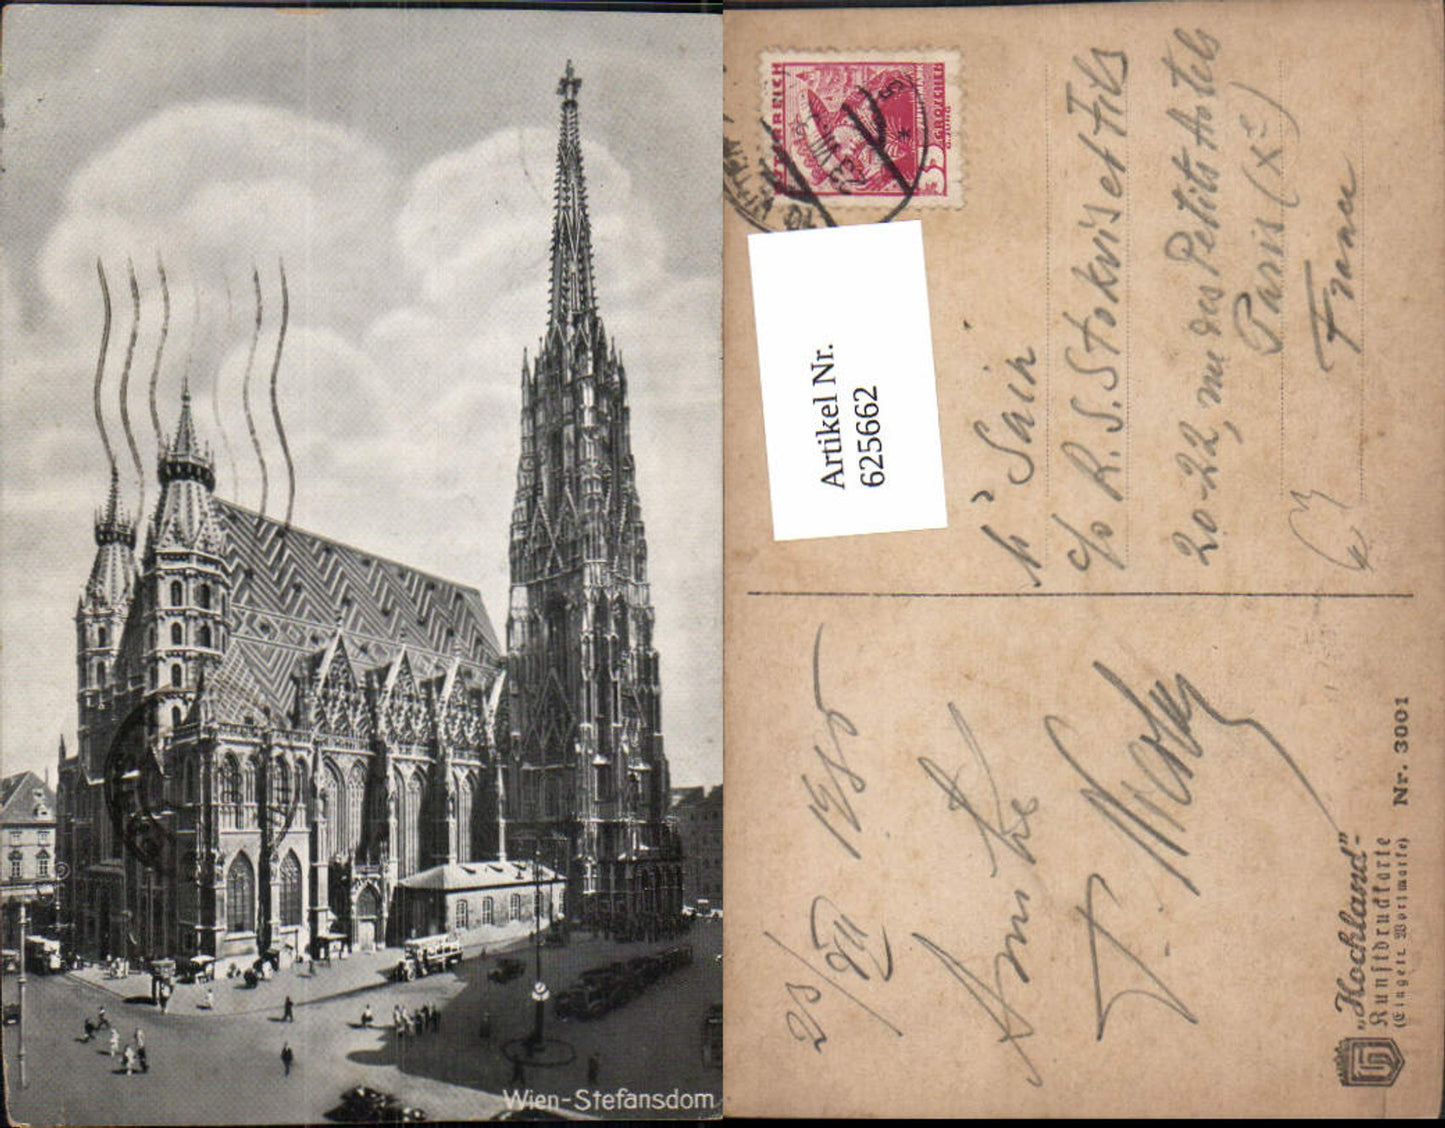 Wien-Stefansdom
ÖSTERREICH
GROSCHEN
5
Artikel Nr.
625662
Sain
c/o R. S. Stokvis et Fils
20-22, rue des Petits Hotels
Paris (Xe)
France
23/VII 1935
Amitié
„Hochland"-
Kunstdruckkarte
(Eingetr. Wortmarke)
Nr. 3001